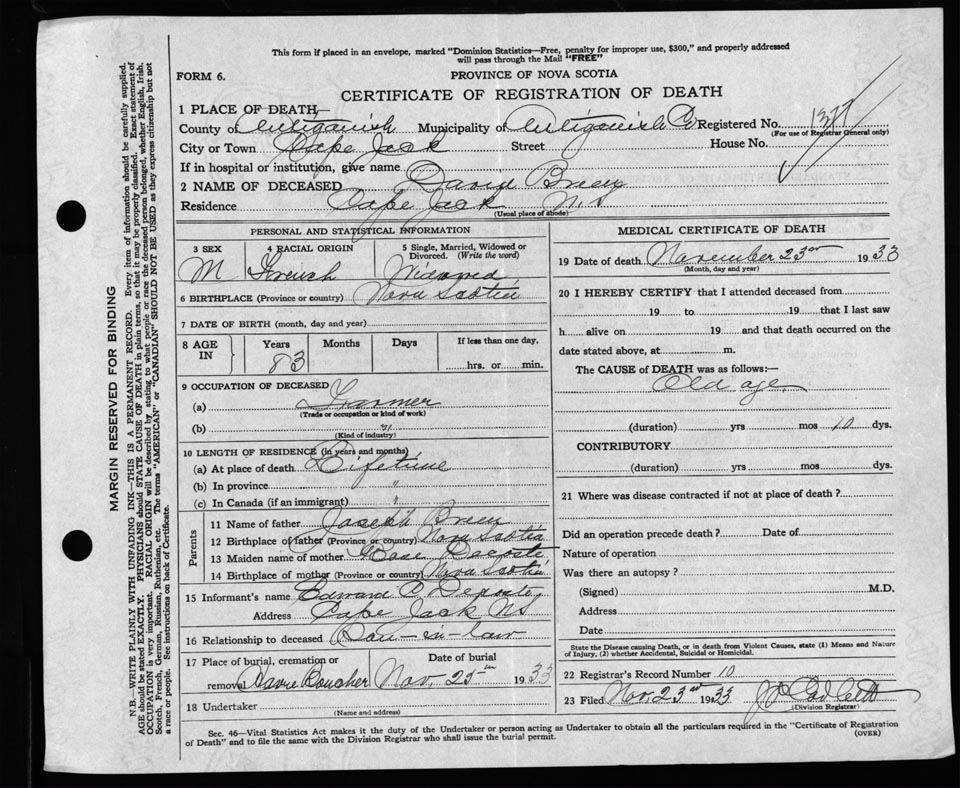 This form if placed in an envelope, marked "Dominion Statistics—Free, penalty for improper use, $300," and properly addressed
will pass through the Mail "FREE"
FORM 6.
PROVINCE OF NOVA SCOTIA
CERTIFICATE OF REGISTRATION OF DEATH
1 PLACE OF DEATH—
County of Antigonish Municipality of Antigonish Co Registered No.
(For use of Registrar General only)
City or Town Cape Jack Street House No.
If in hospital or institution, give name
2 NAME OF DECEASED David Breen
Residence Cape Jack N.S
(Usual place of abode)
PERSONAL AND STATISTICAL INFORMATION
3 SEX M
4 RACIAL ORIGIN French
5 Single, Married, Widowed or Divorced. (Write the word) Widowed
6 BIRTHPLACE (Province or country) Nova Scotia
7 DATE OF BIRTH (month, day and year)
8 AGE IN Years Months Days If less than one day,
83 hrs. or min.
9 OCCUPATION OF DECEASED
(a) Farmer
(Trade or occupation or kind of work)
(b) "
(Kind of industry)
10 LENGTH OF RESIDENCE (in years and months)
(a) At place of death Lifetime
(b) In province "
(c) In Canada (if an immigrant) "
Parents
11 Name of father Joseph Breen
12 Birthplace of father (Province or country) Nova Scotia
13 Maiden name of mother Rose Decoste
14 Birthplace of mother (Province or country) Nova Scotia
15 Informant's name Edward C Decoste
Address Cape Jack NS
16 Relationship to deceased Son-in-law
17 Place of burial, cremation or Date of burial
removal Havre Boucher Nov. 25th 1933
18 Undertaker
(Name and address)
MEDICAL CERTIFICATE OF DEATH
19 Date of death November 23rd 1933
(Month, day and year)
20 I HEREBY CERTIFY that I attended deceased from
19 to 19 that I last saw
h alive on 19 and that death occurred on the
date stated above, at m.
The CAUSE of DEATH was as follows:—
Old age
(duration) yrs mos 10 dys.
CONTRIBUTORY
(duration) yrs mos dys.
21 Where was disease contracted if not at place of death ?
Did an operation precede death? Date of
Nature of operation
Was there an autopsy ?
(Signed) M.D.
Address
Date
State the Disease causing Death, or in death from Violent Causes, state (1) Means and Nature
of Injury, (2) whether Accidental, Suicidal or Homicidal.
22 Registrar's Record Number 10
23 Filed Nov. 23rd 1933
(Division Registrar)
Sec. 46—Vital Statistics Act makes it the duty of the Undertaker or person acting as Undertaker to obtain all the particulars required in the "Certificate of Registration
of Death" and to file the same with the Division Registrar who shall issue the burial permit.
(OVER)
MARGIN RESERVED FOR BINDING
N.B.—WRITE PLAINLY WITH UNFADING INK—THIS IS A PERMANENT RECORD. Every item of information should be carefully supplied.
AGE should be stated EXACTLY. PHYSICIANS should STATE CAUSE OF DEATH in plain terms, so that it may be properly classified. Exact statement of
OCCUPATION is very important. RACIAL ORIGIN will be described by stating to what people or race the deceased person belonged, whether English, Irish,
Scotch, French, German, Russian, Ruthenian, etc. The terms "AMERICAN" or "CANADIAN" SHOULD NOT BE USED as they express citizenship but not
a race or people. See instructions on back of Certificate.